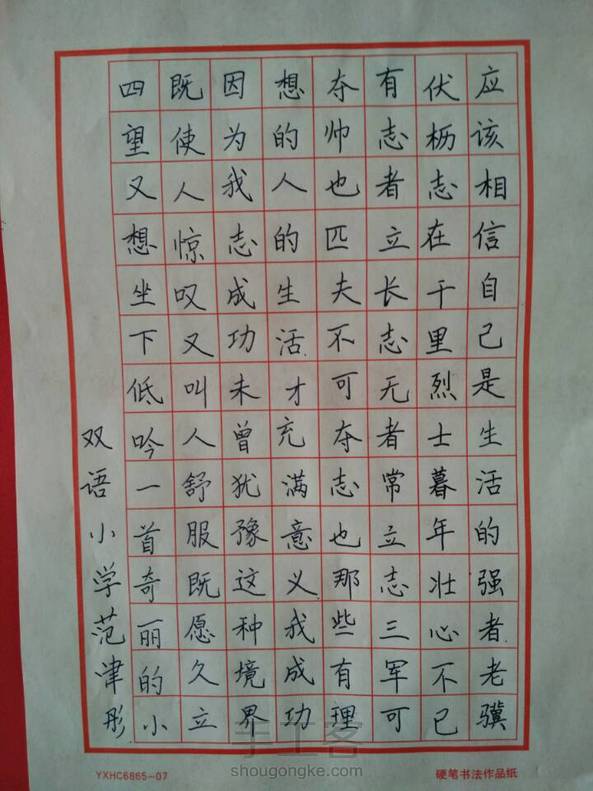 应该相信自己是生活的强者老骥
伏枥志在千里烈士暮年壮心不已
有志者立长志无者常立志三军可
夺帅也匹夫不可夺志也那些有理
想的人的生活才充满意义我成功
因为我志成功未曾犹豫这种境界
既使人惊叹又叫人舒服既愿久立
四望又想坐下低吟一首奇丽的小
双语小学范津彤
手工客
shougongke.com
YXHC6865-07
硬笔书法作品纸